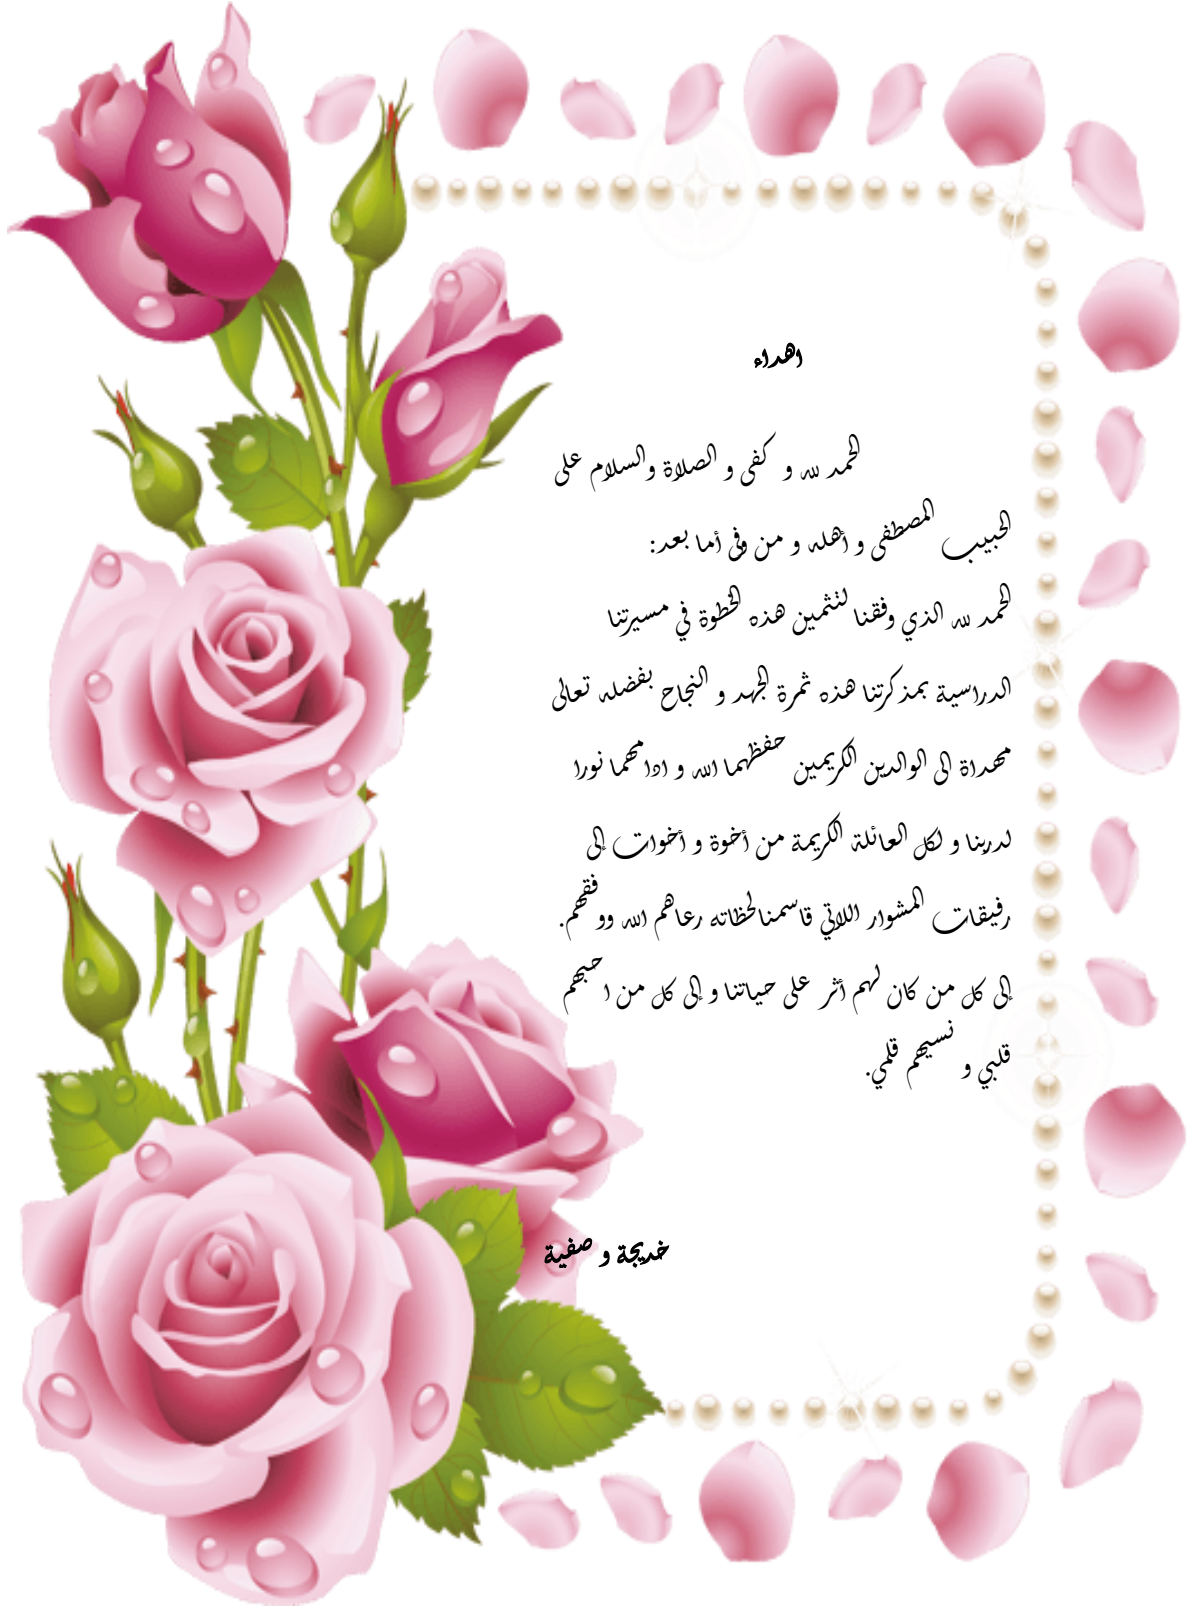 اهداء
الحمد لله و كفى و الصلاة والسلام على
الحبيب المصطفى و أهله و من وفى أما بعد:
الحمد لله الذي وفقنا لتثمين هذه الخطوة في مسيرتنا
الدراسية بمذكرتنا هذه ثمرة الجهد و النجاح بفضله تعالى
مهداة الى الوالدين الكريمين حفظهما الله و ادامهما نورا
لدربنا و لكل العائلة الكريمة من أخوة و أخوات إلى
رفيقات المشوار اللاتي قاسمنالحظاته رعاهم الله ووفقهم.
إلى كل من كان لهم أثر على حياتنا و إلى كل من احبهم
قلبي و نسيهم قلمي.
خديجة و صفية